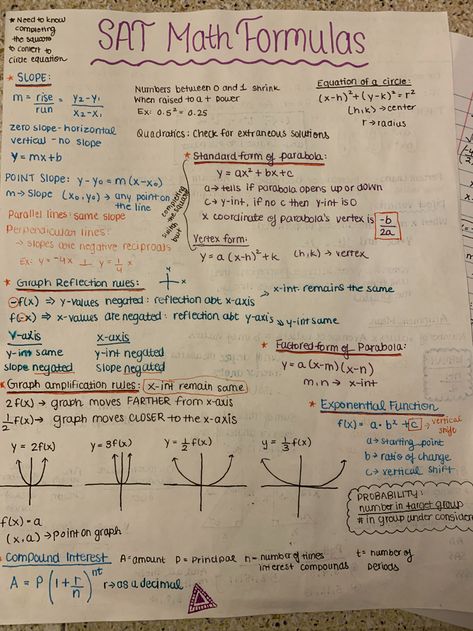 * Need to know
completing
the square
to convert to
circle equation
SAT Math Formulas
* SLOPE:
m = rise/run = y₂-y₁/x₂-x₁
zero slope - horizontal
vertical - no slope
y = mx+b
POINT Slope: y-y₀ = m(x-x₀)
m → Slope (x₀,y₀) → any point on
the line
Parallel lines: same slope
Perpendicular lines:
→ slopes are negative reciprocals
Ex: y = -4x ⊥ y = 1/4 x
Numbers between 0 and 1 shrink
When raised to a + power
Ex: 0.5² = 0.25
Quadratics: Check for extraneous solutions
Equation of a circle:
(x-h)² + (y-k)² = r²
(h,k) → center
r → radius
* Standard form of parabola:
y = ax² + bx + c
a → tells if parabola opens up or down
c → y-int, if no c then y-int is 0
x coordinate of parabola's vertex is -b/2a
completing
the square
switch
but
Vertex form:
y = a(x-h)² + k (h,k) → vertex
* Graph Reflection rules:
-f(x) → y-values negated: reflection abt x-axis → x-int remains the same
f(-x) → x-values are negated: reflection abt y-axis → y-int same
Y-axis x-axis
y-int same y-int negated
slope negated slope negated
* Graph amplification rules: x-int remain same
2f(x) → graph moves FARTHER from x-axis
1/2 f(x) → graph moves CLOSER to the x-axis
y = 2f(x) y = 3f(x) y = 1/2 f(x) y = 1/3 f(x)
* Factored form of Parabola:
y = a(x-m)(x-n)
m,n → x-int
* Exponential Function
f(x) = a·bˣ + c → vertical
shift
a → starting point
b → ratio of change
c → vertical shift
PROBABILITY:
number in target group
# in group under consider
f(x) = a
(x,a) → point on graph
Compound Interest A=amount P = Principal n = number of times
interest compounds t = number of
periods
A = P(1 + r/n)ⁿᵗ r → as a decimal